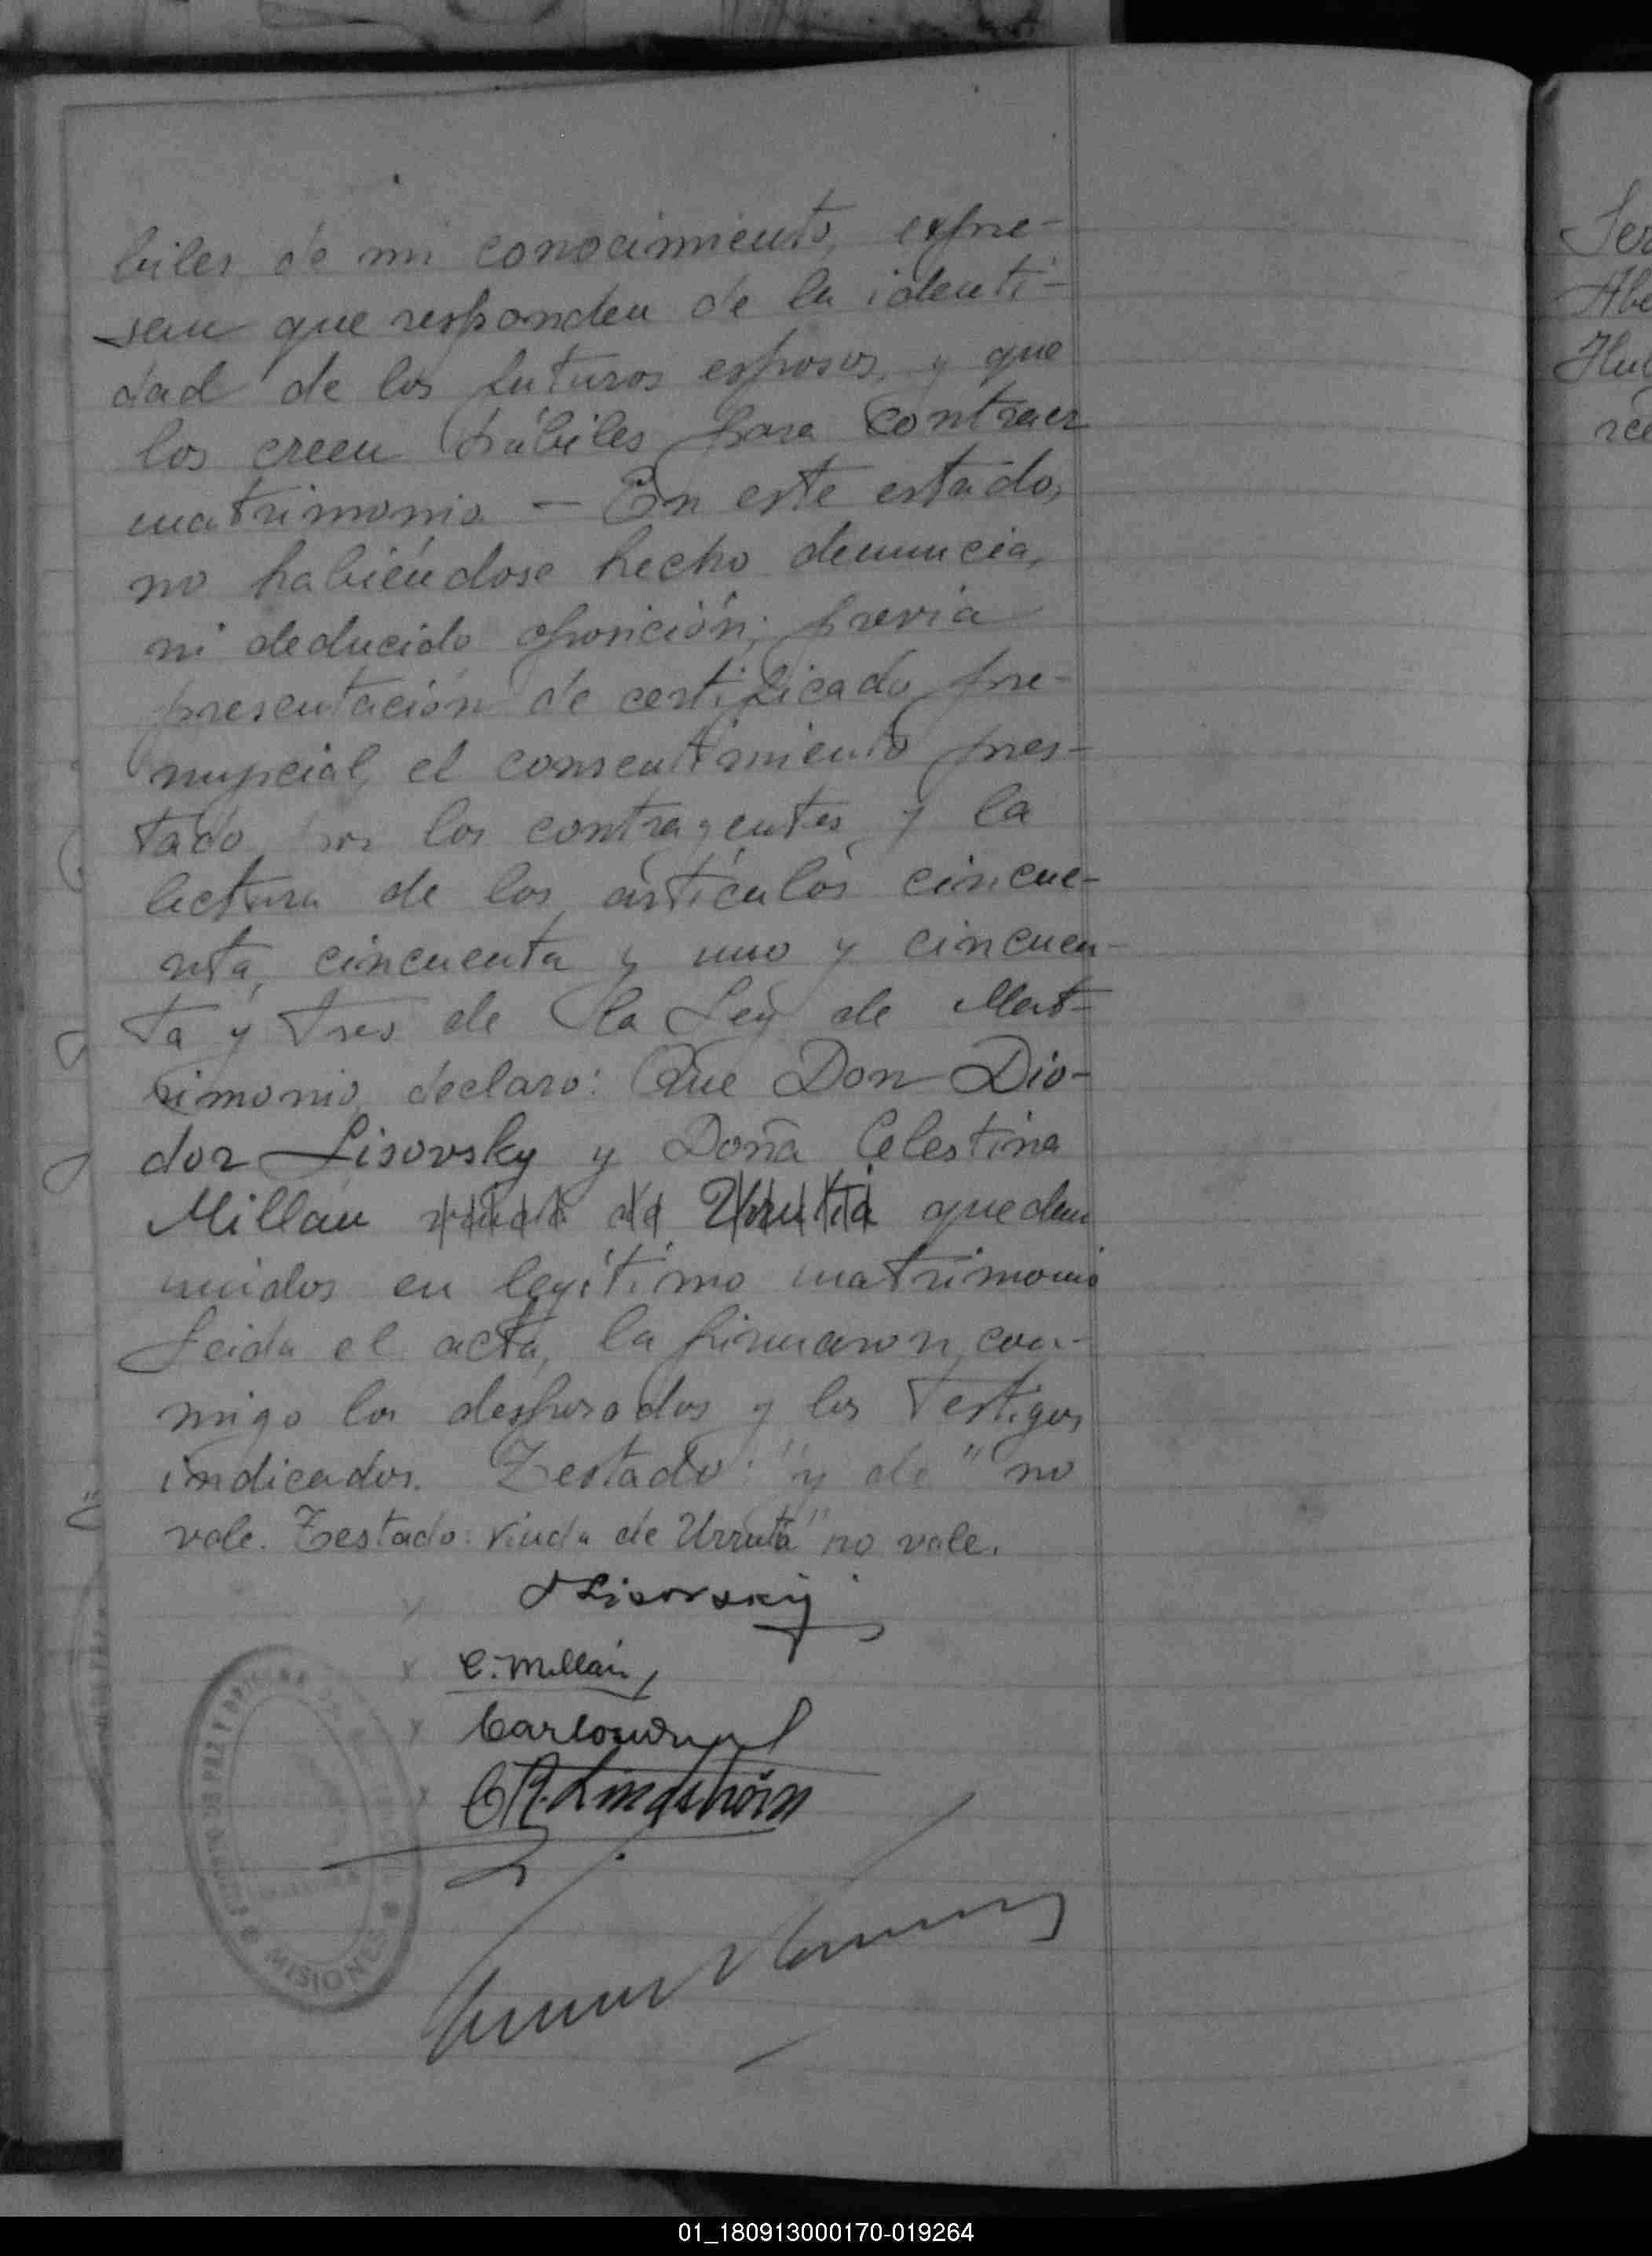 biles de mi conocimiento, expre-
san que responden de la identi-
dad de los futuros esposos, y que
los creen hábiles para contraer
matrimonio - En este estado,
no habiéndose hecho denuncia,
ni deducido oposición; previa
presentación de certificado pre-
nupcial, el consentimiento pres-
tado por los contrayentes y la
lectura de los artículos cincue-
nta, cincuenta y uno y cincuen-
ta y tres de la Ley de Mat-
rimonio, declaro: Que Don Dio-
dor Lisovsky y Doña Celestina
Millán viuda de Urrutia quedan
unidos en legítimo matrimonio
Leida el acta, la firmaron, con-
migo los desposados y los testigos
indicados. Testado: "y de" no
vale. Testado: viuda de Urrutia" no vale.
Lisovsky
C. Millán
C R. Lindstrom
MISIONES
Ser
Abe
01_180913000170-019264